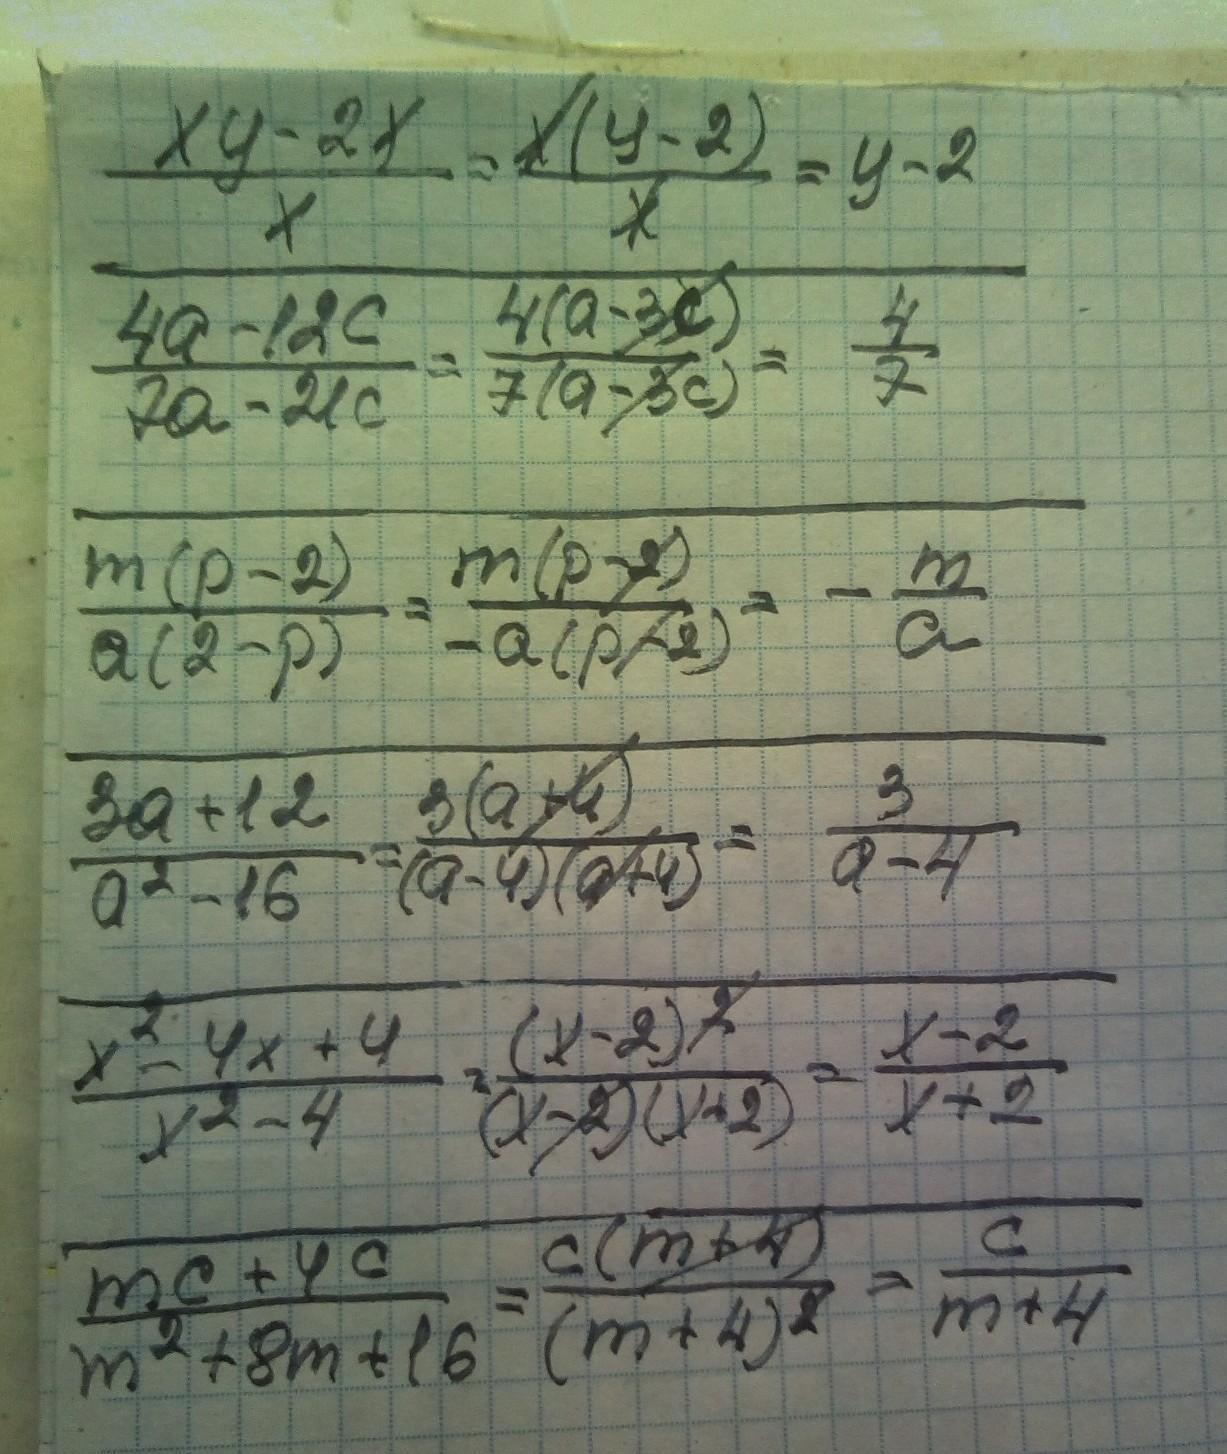 (xy - 2x)/x = x(y - 2)/x = y - 2
(4a - 12c)/(7a - 21c) = 4(a - 3c)/7(a - 3c) = 4/7
m(p - 2)/a(2 - p) = m(p - 2)/-a(p - 2) = - m/a
(3a + 12)/(a² - 16) = 3(a + 4)/(a - 4)(a + 4) = 3/(a - 4)
(x² - 4x + 4)/(x² - 4) = (x - 2)²/(x - 2)(x + 2) = (x - 2)/(x + 2)
(mc + 4c)/(m² + 8m + 16) = c(m + 4)/(m + 4)² = c/(m + 4)